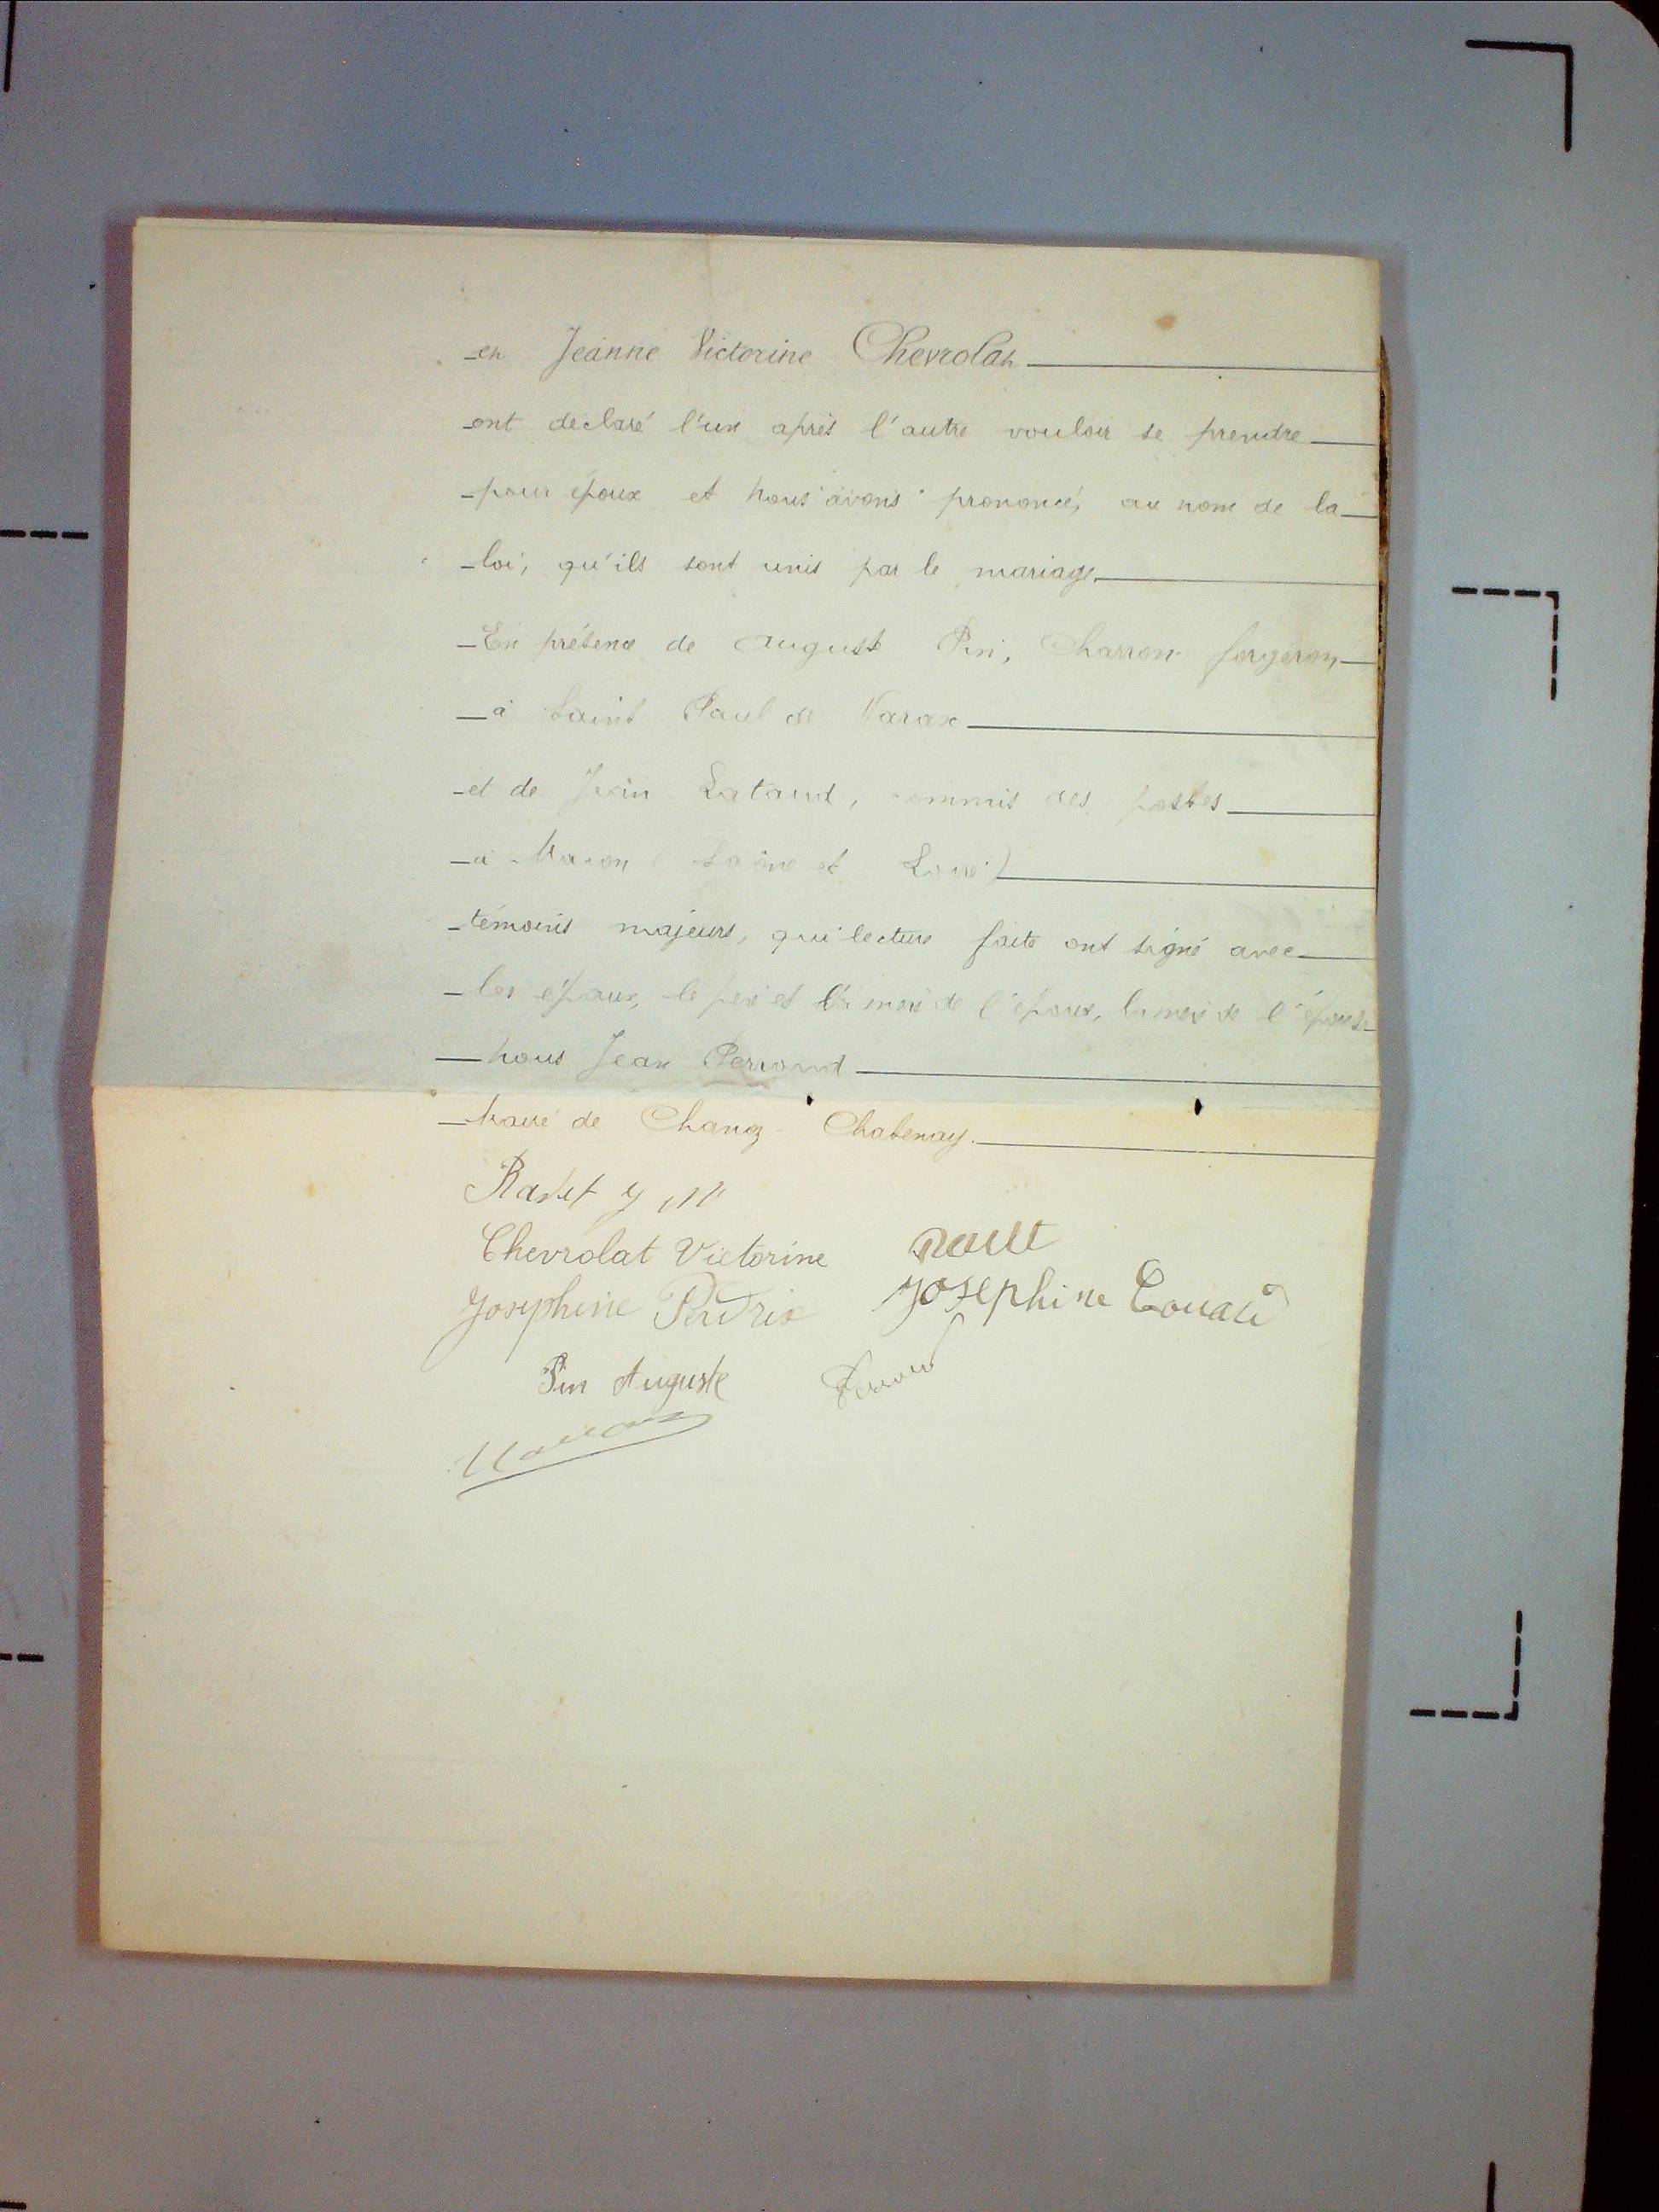 et Jeanne Victorine Chevrolat
ont declaré l'un après l'autre vouloir se prendre
pour époux et nous avons prononcé, au nom de la
loi, qu'ils sont unis par le mariage.
En présence de Auguste Pin, Charron forgeron
à Saint Paul de Varax
et de Jean Lataud, commis des postes
à Macon (Saône et Loire)
témoins majeurs, qui lecture faite ont signé avec
les époux, le père et la mère de l'époux, la mère de l'épouse
nous Jean Perraud
maire de Chanoz Chatenay.
Chevrolat Victorine
Josephine Perdrix Josephine
Pin Auguste Perraud